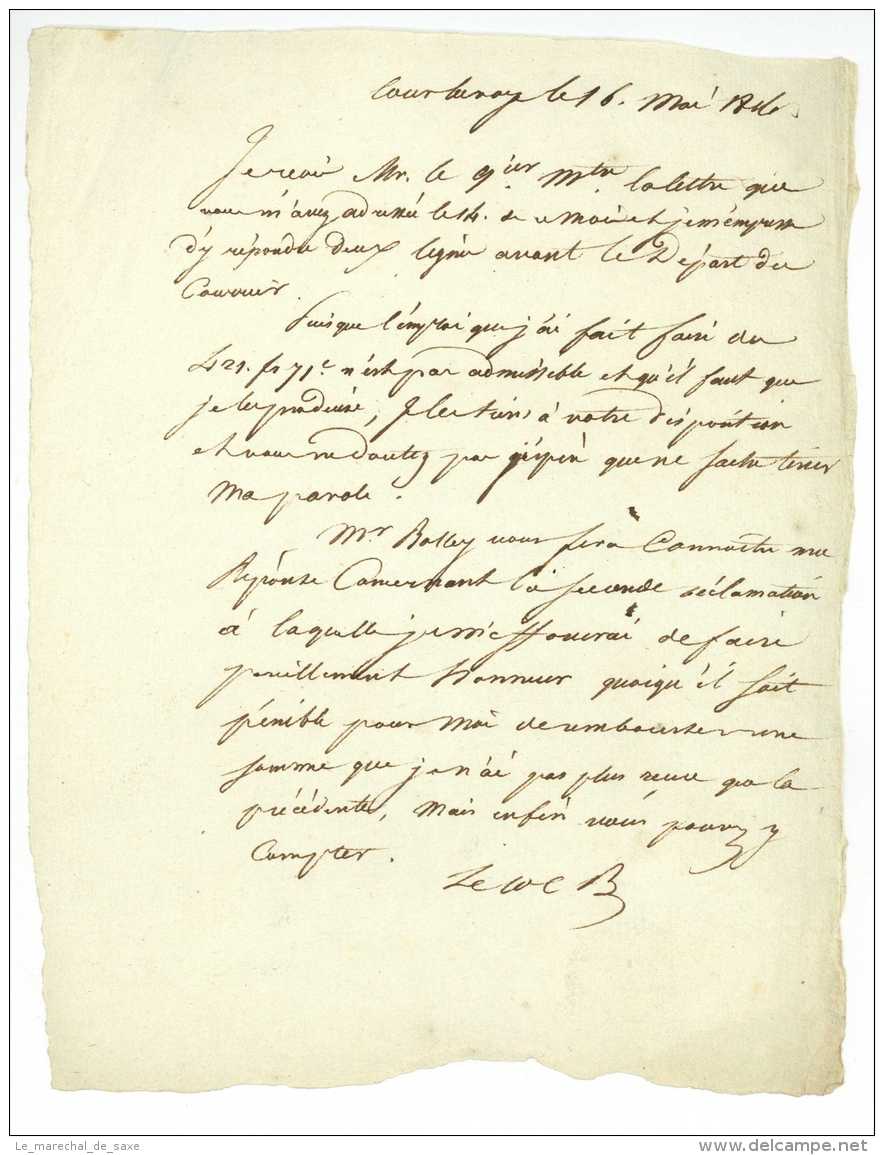 Courtenay le 16. Mai
Je recois Mr. le qier Mtre la lettre que
vous m'avez adressée le 14. de ce mois et je m'empresse
d'y répondre deux lignes avant le Départ du
Courrier.
Puisque l'emploi que j'ai fait faire des
421. fr 71c n'est pas admissible et qu'il faut que
je les produise, Je les tiens à votre disposition
et vous ne doutez pas j'espère que ne sache tenir
Ma parole.
Mr Bolley vous fera Connoitre ma
Réponse Concernant la seconde réclamation
à laquelle je m'efforcerai de faire
pareillement honneur quoiqu'il soit
pénible pour Moi de rembourser une
somme que je n'ai pas plus reçue que la
précédente, Mais enfin vous pouvez y
Compter.
Le Col B
Le_marechal_de_saxe
delcampe.net